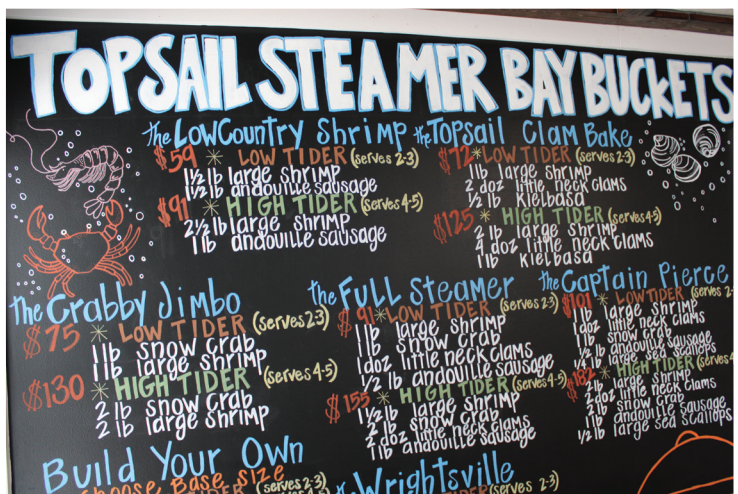 TOPSAIL STEAMER BAY BUCKETS
the LowCountry Shrimp
$59 * LOW TIDER (serves 2-3)
1½ lb large shrimp
1½ lb andouille sausage
$91 * HIGH TIDER (serves 4-5)
2½ lb large shrimp
1 lb andouille sausage
the Topsail Clam Bake
$72 * LOW TIDER (serves 2-3)
1 lb large shrimp
2 doz little neck clams
½ lb Kielbasa
$125 * HIGH TIDER (serves 4-5)
2 lb large shrimp
4 doz little neck clams
1 lb Kielbasa
the Crabby Jimbo
$75 * LOW TIDER (serves 2-3)
1 lb snow crab
1 lb large shrimp
$130 * HIGH TIDER (serves 4-5)
2 lb snow crab
2 lb large shrimp
the FULL Steamer
$91 * LOW TIDER (serves 2-3)
1 lb large shrimp
1 lb snow crab
1 doz little neck clams
½ lb andouille sausage
$155 * HIGH TIDER (serves 4-5)
1½ lb large shrimp
2 lb snow crab
2 doz little neck clams
1 lb andouille sausage
the Captain Pierce
$101 * LOW TIDER (serves 2-
1 lb large shrimp
1 doz little neck clams
1 lb snow crab
½ lb andouille sausage
¼ lb large sea scallops
$182 * HIGH TIDER (serves 4
2 lb large shrimp
2 doz little neck clams
2 lb snow crab
1 lb andouille sausage
½ lb large sea scallops
Build Your Own
Choose Base Size
(serves 2-3)
the Wrightsville
(serves 2-3)